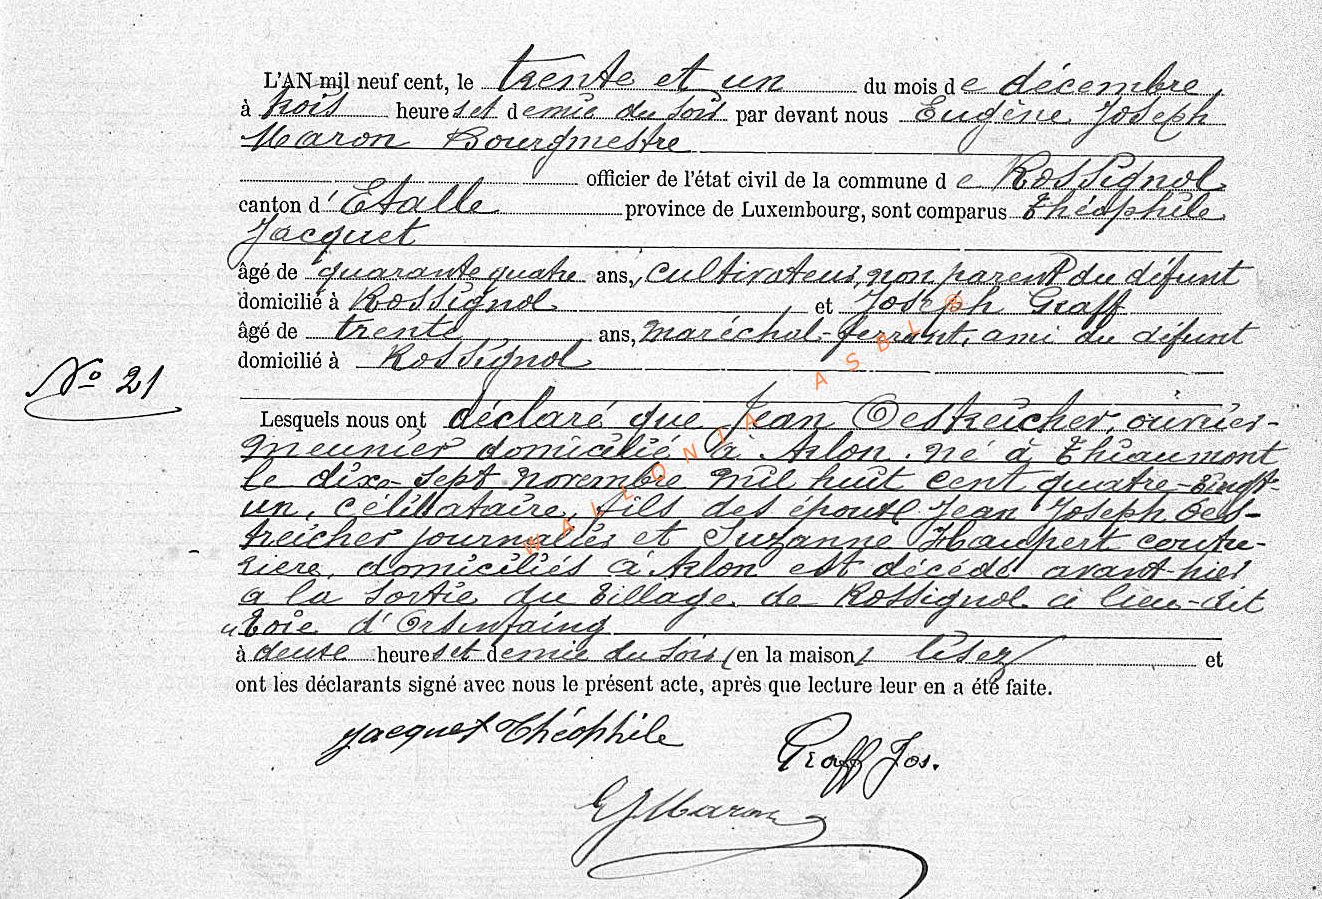 L'AN mil neuf cent, le trente et un du mois de décembre,
à trois heures et demie du soir par devant nous Eugène Joseph
Maron Bourgmestre
officier de l'état civil de la commune de Rossignol
canton d'Etalle province de Luxembourg, sont comparus Théophile
Jacquet
âgé de quarante quatre ans, cultivateur, non parent du défunt
domicilié à Rossignol et Joseph Graff
âgé de trente ans, maréchal-ferrant, ami du défunt
domicilié à Rossignol
No 21
Lesquels nous ont déclaré que Jean Oestreicher, ouvrier-
meunier domicilié à Arlon, né à Thiaumont
le dix-sept novembre mil huit cent quatre-vingt-
un, célibataire, fils des époux Jean Joseph Oes-
treicher journalier et Suzanne Haupert coutu-
rière, domiciliés à Arlon est décédé avant-hier
à la sortie du village de Rossignol à lieu-dit
"Voie d'Orsinfaing
à deuxe heures et demie du soir (en la maison) lisez et
ont les déclarants signé avec nous le présent acte, après que lecture leur en a été faite.
Jacquet Théophile
Graff Jos.
EJMaron
WALLONIA ASBL ©